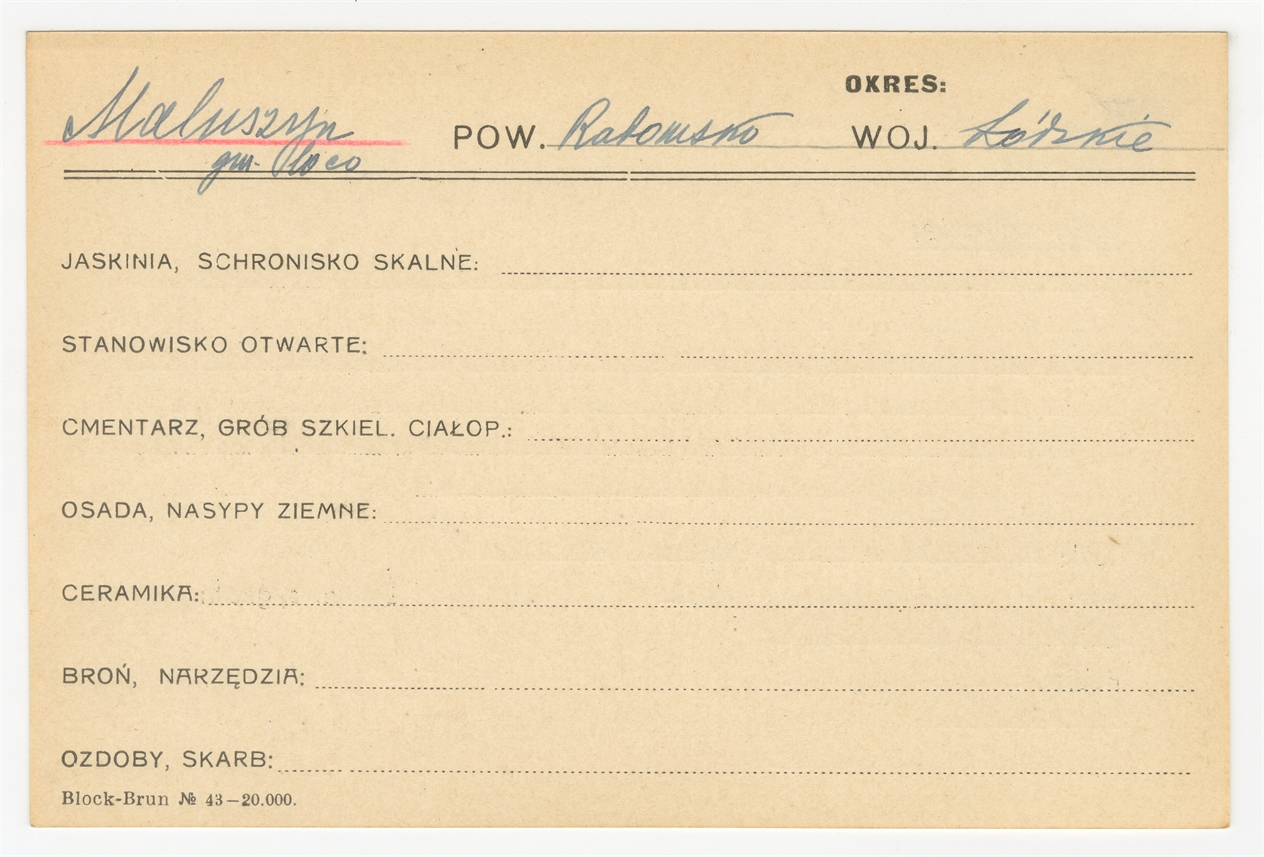 OKRES:
Maluszyn POW. Radomsko WOJ. Łódzkie
gm. loco
JASKINIA, SCHRONISKO SKALNE:
STANOWISKO OTWARTE:
CMENTARZ, GRÓB SZKIEL. CIAŁOP.:
OSADA, NASYPY ZIEMNE:
CERAMIKA:
BROŃ, NARZĘDZIA:
OZDOBY, SKARB:
Block-Brun № 43—20.000.